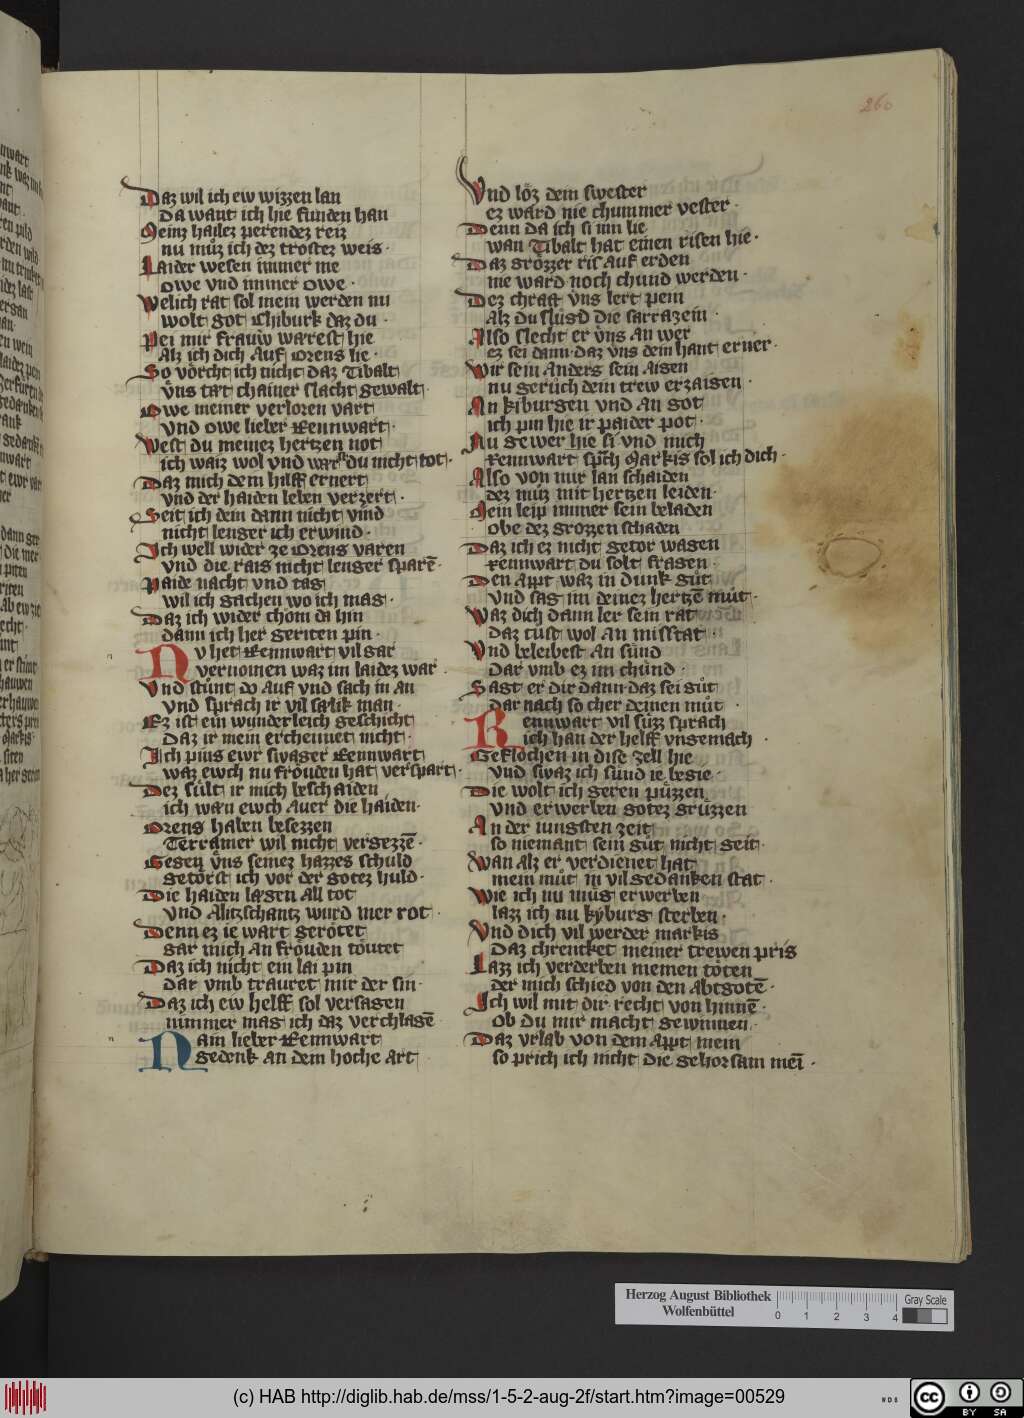 260
Daz wil ich ew wizzen lan
Da want ich hie funden han
Meinz hailez perendez reiz
nu můz ich dez trostez weis ·
Laider wesen immer me
owe vnd immer owe ·
Welich rat sol mein werden nu
wolt got Chiburk daz du ·
Pei mir frauw warest hie
Alz ich dich Auf orens lie ·
So vörcht ich nicht daz Tibalt
vns tæt chainer slacht gewalt ·
Owe meiner verloren vart
Vnd owe lieber Rennwart ·
West du meinez hertzen not
ich waiz wol vnd wær du nicht tot ·
Daz mich dein hilff ernert
vnd der haiden leben verzert ·
Seit ich dein dann nicht vind
nicht lenger ich erwind ·
Ich well wider ze orens varen
vnd die rais nicht lenger sparē ·
Paide nacht vnd tag
wil ich gachen wo ich mag ·
Daz ich wider chom da hin
dann ich her geriten pin ·
Nv het Rennwart vil gar
vernomen waz im laidez war ·
Vnd stůnt do auf vnd sach in an
vnd sprach ir vil sælik man ·
Ez ist ein wunderleich geschicht
Daz ir mein erchennet nicht ·
Ich pins ewr swager Rennwart
waz ewch nu fröuden hat verspart ·
Dez sült ir mich beschaiden
ich wæn ewch Auer die haiden ·
Orens haben besezzen
Terramer wil nicht vergezzē ·
Gegen vns seinez hazzes schuld
getörst ich vor der gotez huld ·
Die haiden lægen All tot
vnd Alitzschantz wurd mer rot ·
Denn ez ie wart gerötet
gar mich an fröuden tötet
Daz ich nicht ein lai pin
dar vmb trauret mir der sin ·
Daz ich ew helff sol versagen
nimmer mag ich daz verchlagē
Nain lieber Rennwart
gedenk an dein hoche art
Vnd löz dein swester
ez ward nie chummer vester ·
Denn da ich si inn lie
wan Tibalt hat einen risen hie ·
Daz grözzer ris auf erden
nie ward noch chund werden ·
Dez chraft vns lert pein
Alz du slůgd die sarrazein ·
Also slecht er vns An wer
ez sei dann daz vns dein hant erner ·
Wir sein Anders sein aigen
nu gerůch dein trew erzaigen ·
An kiburgen vnd An got
ich pin hie ir paider pot ·
Nu gewer hie si vnd mich
Rennwart sprich Markis sol ich dich ·
Also von mir lan schaiden
dez můz mit hertzen leiden ·
Mein leip immer sein beladen
obe dez grozzen schaden
Daz ich ez nicht getor wagen
Rennwart du solt fragen ·
Den Appt waz in dunk gůt
vnd sag im deinez hertzē můt ·
Waz dich dann ler sein rat
daz tůst wol An misstat ·
Vnd beleibest An sünd
Dar vmb ez im chünd ·
Sagt er dir dann daz sei gůt
dar nach so cher deinen můt ·
Rennwart vil süzz sprach
ich han der helff vngemach ·
Geflochen in dise zell hie
vnd swaz ich sünd ie begie ·
Die wolt ich geren püzzen
vnd erwerben gotez grüzzen
An der iungsten zeit
so niemant sein gůt nicht geit ·
Wan alz er verdienet hat
mein můt in vil gedanken stat ·
Wie ich nu müg erwerben
lazz ich nu kyburg sterben ·
Vnd dich vil werder markis
Daz chrencket meiner trewen pris
Lazz ich verderben niemen töten
der mich schied von den Abtgotē ·
Ich wil mit dir recht von hinnē ·
ob du mir macht gewinnen ·
Daz vrlab von dem Appt mein
so prich ich nicht die gehorsam mēi ·
Herzog August Bibliothek
Wolfenbüttel
0 1 2 3 4
Gray Scale
(c) HAB http://diglib.hab.de/mss/1-5-2-aug-2f/start.htm?image=00529
WDB
cc BY SA